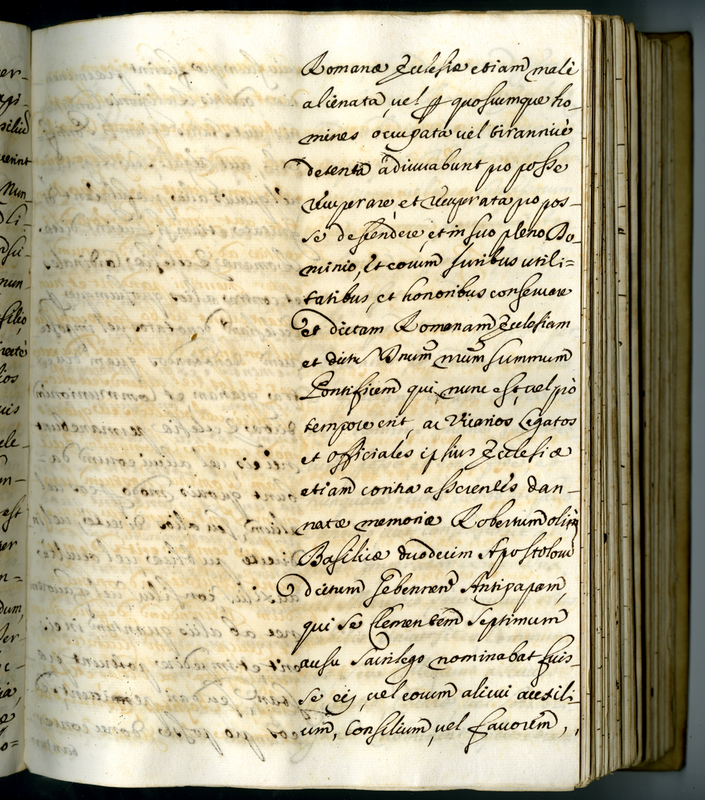 Romanæ Ecclesiæ etiam malè
alienata, vel p quoscumque ho-
mines occupata vel tirannicè
detenta adiuvabunt pro posse
recuperare, et recuperata pro pos-
se defendere, et in suo pleno Do-
minio, et eorum iuribus utili=
tatibus, et honoribus conservare
et dictam Romanam Ecclesiam
et dictu Dnum nrum summum
Pontificem qui nunc est, vel pro
tempore erit, ac Vicarios Legatos
et officiales ipsius Ecclesiæ
etiam contra asserentes dam-
natæ memoriæ Robertum olim
Basilicæ duodecim Apostolorum
dictum Gebennen Antipapam,
qui se Clementem Septimum
ausu sacrilego nominabat fuis-
se eis, vel eorum alicui auxili-
um, Consilium, vel favorem,